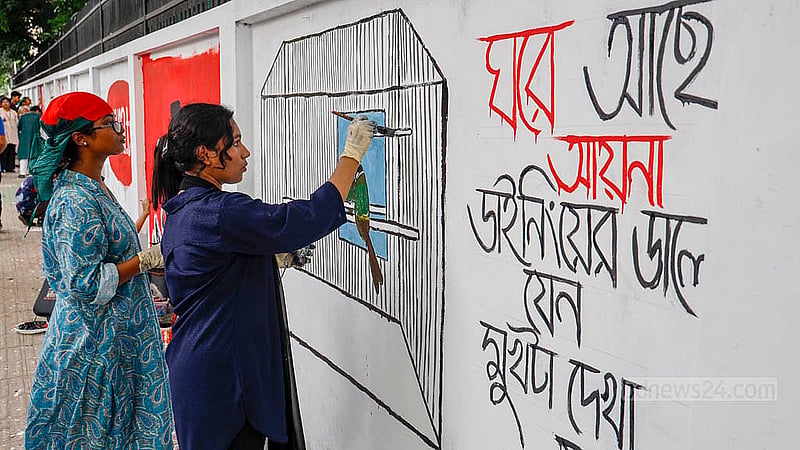 ঘরে আছে
আয়না
ডাইনিংয়ের ডালে
যেন
মুখটা দেখা
bdnews24.com